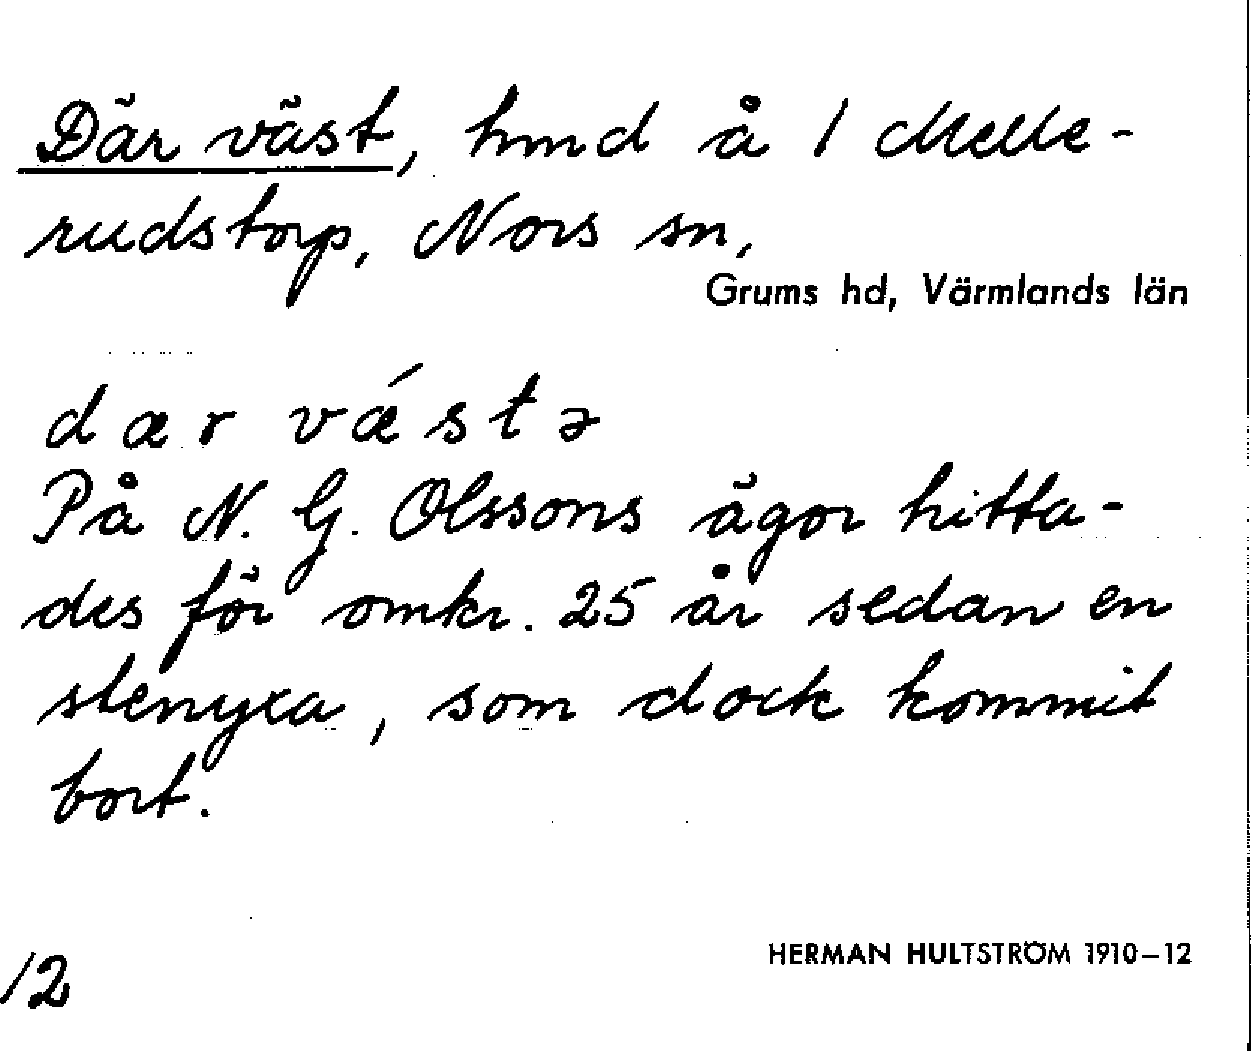 Där väst, hmd å 1 Melle-
rudstorp, Nors sn,
Grums hd, Värmlands län
dær vǽstə
På N. G. Olssons ägor hitta-
des för omkr. 25 år sedan en
stenyxa, som dock kommit
bort.
HERMAN HULTSTRÖM 1910–12
/2